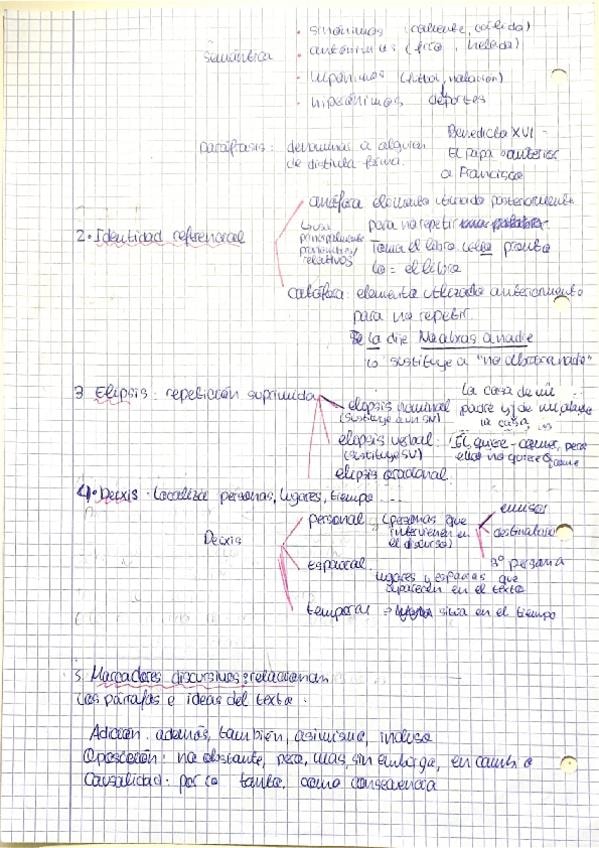 Semántica
· sinónimos (caliente, cálida)
· antónimos (frío, helada)
· hipónimos (fútbol, natación)
· hiperónimos deportes
paráfrasis: denominar a alguien
de distinta forma.
Benedicto XVI -
El papa anterior
a Francisco
2. Identidad referencial
anáfora elemento utilizado posteriormente
para no repetir una palabra
Toma el libro, léelo pronto
lo = el libro
usa
principalmente
pronombres/
relativos
catáfora: elemento utilizado anteriormente
para no repetir
Se lo dije No abras a nadie
lo sustituye a "no abras a nadie"
3 Elipsis: repetición suprimida
elipsis nominal
(sustituye a un SN)
La casa de mi
padre y/de mi madre
la casa
elipsis verbal: Él quiere comer, pero
(sustituye SV) ella no quiere comer
elipsis oracional
4. Deixis. Localiza personas, lugares, tiempo ...
Deixis
personal (personas que
intervienen en
el discurso)
emisor
destinatario
3ª persona
espacial
lugares y espacios que
aparecen en el texto
temporal → sitúa en el tiempo
5. Marcadores discursivos: relacionan
los párrafos e ideas del texto.
Adición: además, también, asimismo, incluso
Oposición: no obstante, pero, mas, sin embargo, en cambio
Causalidad: por lo tanto, como consecuencia